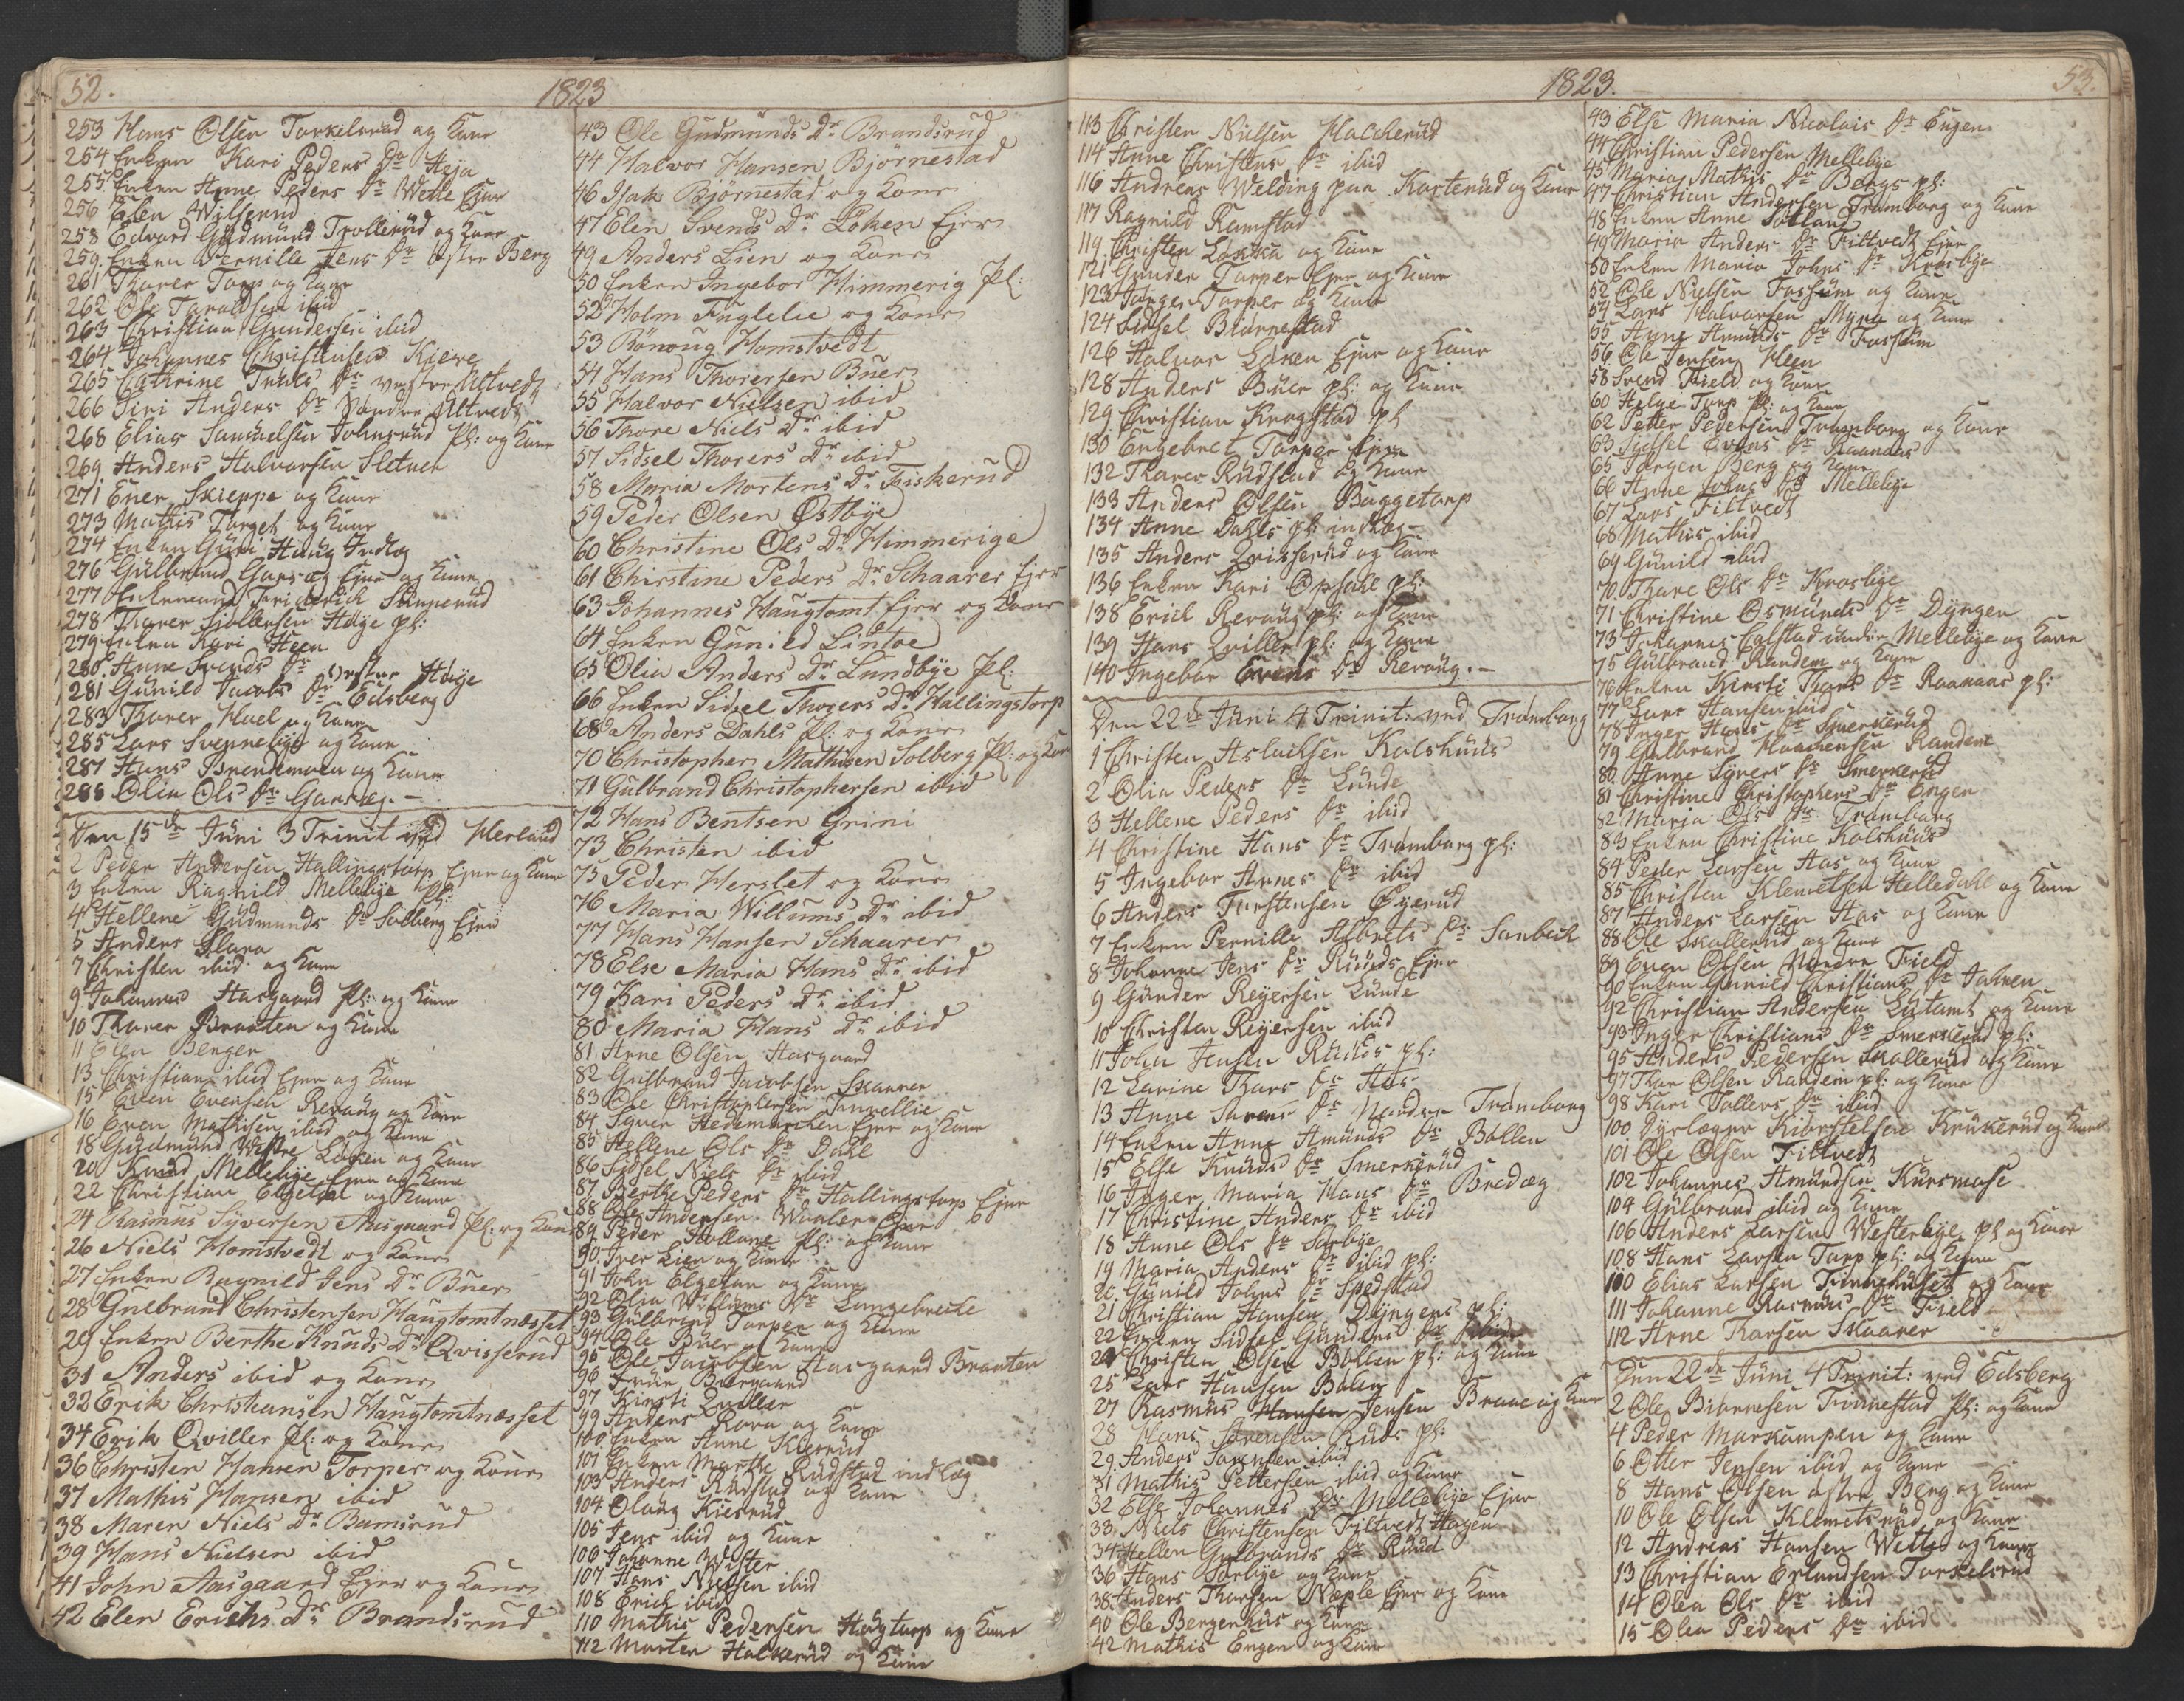 52.
1823
253 Hans Olsen Torkelsrud og Kone
254 Enken Kari Peders Dr Heja
255 Enken Anne Peders Dr Wette Ejer
256 Elen Wilserud
258 Edvard Gudmund Trollerud og Kone
259. Enken Pernille Jens Dr Østre Berg
261 Thorer Torp og Kone
262 Ole Taraldsen ibid
263 Christian Gundersen ibid
264 Johannes Christensen Kjerre
265 Cathrine Truls Dr vestre Ultvedt
266 Siri Anders Dr Nordre Ultvedt
268 Elias Samuelsen Johnsrud Pl: og Kone
269 Anders Halvorsen Sletner
271 Ener Skieppe og Kone
273 Mathis Torget og Kone
274 Enken Guri Haug Indlæg
276 Gulbrand Garsæg Ejer og Kone
277 Enkemand Friderich Sünnerud
278 Thorer Tiollersen Høye pl:
279 Enken Kari Heen
280. Anne Svends Dr vestre Høye
281 Gunild Jacobs Dr Eidsberg
283 Thorer Huel og Kone
285 Lars Svennebye og Kone
287 Hans Brendemoen og Kone
288 Olia Ols Dr Garsæg. –
Den 15de Juni 3 Trinit ved Herland
2 Peder Andersen Hallingstorp Ejer og Kone
3 Enken Ragnild Mellebye Pl:
4 Hellene Gudmunds Dr Solberg Ejer
5 Anders Slara
7 Christen ibid og Kone
9 Johannes Aasgaard Pl: og Kone
10 Thorer Braaten og Kone
11 Elen Benger
13 Christian ibid Ejer og Kone
15 Even Evensen Revaug og Kone
16 Even Mathisen ibid og Kone
18 Gudmund Westre Løken og Kone
20 Knud Mellebye Ejer og Kone
22 Christian Elgetun og Kone
24 Rasmus Syversen Aasgaard Pl: og Kone
26 Niels Homstvedt og Kone
27 Enken Ragnild Jens Dr Buer
28 Gulbrand Christensen Haugtomtnæsset
29 Enken Berthe Knuds Dr Qvisserud
31 Anders ibid og Kone
32 Erik Christiansen Haugtomtnæsset
34 Erik Qviller Pl: og Kone
36 Christen Hansen Torper og Kone
37 Mathis Hansen ibid
38 Maren Niels Dr Bamsrud
39 Hans Nielsen ibid
41 John Aasgaard Ejer og Kone
42 Elen Erichs Dr Brandsrud
43 Ole Gudmunds Dr Brandsrud
44 Halvor Hansen Bjørnestad
46 Isak Bjørnestad og Kone
47 Elen Svends Dr Løken Ejer
49 Anders Lien og Kone
50 Enken Ingebor Himmerig Pl:
52 Holm Fuglelie og Kone
53 Rønnoug Homstvedt
54 Hans Thorersen Buer
55 Halvor Nielsen ibid
56 Thore Niels Dr ibid
57 Sidsel Thorers Dr ibid
58 Maria Mortens Dr Fiskerud
59 Peder Olsen Østbye
60 Christine Ols Dr Himmerige
61 Chirstine Peders Dr Schaarer Ejer
63 Johannes Haugtomt Ejer og Kone
64 Enken Gunild Lintoe
65 Olia Anders Dr Lundbye Pl:
66 Enken Sidsel Thorers Dr Hallingstorp
68 Anders Dahls Pl: og Kone
70 Christopher Mathisen Solberg Pl: og Kone
71 Gulbrand Christophersen ibid
72 Hans Bentsen Grini
73 Christen ibid
75 Peder Herslet og Kone
76 Maria Willums Dr ibid
77 Hans Hansen Schaarer
78 Else Maria Hans Dr ibid
79 Kari Peders Dr ibid
80 Maria Hans Dr ibid
81. Arne Olsen Aasgaard
82 Gulbrand Jacobsen Skaarer
83 Ole Christophersen
84 Iver Hedemarchen Ejer og Kone
85 Hellene Ols Dr Dahl
86 Sidsel Niels Dr ibid
87 Berthe Peders Dr Hallingstorp Ejer
88 Ole Andersen Waaler Ejer
89 Peder Holland Pl: og Kone
90. Iver Lien og Kone
91 John Elgetun og Kone
92 Olia Willums Dr Langebrecke
93 Gulbrand Torper og Kone
94 Ole Buer og Kone
95 Ole Jacobsen Aasgaard Braaten
96 Frue Biergaard
97 Kirsti Qviller
99 Anders Rova og Kone
100. Enken Anne Kiesrud
101 Enken Marthe Rudstad indlæg
103 Anders Rudstad og Kone
104 Olaug Kiesrud
105 Jens ibid og Kone
106 Johanne Wister
107 Hans Nielsen ibid
108 Erich ibid
110 Mathis Pedersen Haugtorp og Kone
112 Morten Halkerud og Kone
1823.
53.
113 Christen Nielsen Halckerud
114 Anne Christens Dr ibid
116 Andreas Welding paa Korterud og Kone
117 Ragnild Ramstad
119. Christen Løkka og Kone
121 Gunder Torper Ejer og Kone
123 Jørgen Torper og Kone
124 Sidsel Biørnestad
126 Halvor Løken Ejer og Kone
128 Anders Buer pl: og Kone
129. Christian Krogstad pl
130 Engebret Torper Ejer
132 Thorer Rudstad og Kone
133 Anders Olsen Buggetorp
134 Anne Dahls pl: indlæg –
135 Anders Qvisserud og Kone
136 Enken Kari Opsahl pl:
138 Erich Revaug pl: og Kone
139 Hans Qviller pl: og Kone
140 Ingebor Evens Dr Revaug. –
Den 22de Juni 4 Trinit: ved Trømborg
1 Christen Aslachsen Kolshuus
2 Olia Peders Dr Lunde
3 Hellene Peders Dr ibid
4 Christine Hans Dr Trømborg pl:
5 Ingebor Arnes Dr ibid
6 Anders Torstensen Øyerud
7 Enken Pernille Albrets Dr Sanbeck
8. Johanne Jens Dr Ruuds Ejer
9 Gunder Reyersen Lunde
10 Christen Reyersen ibid
11 John Jensen Ruuds pl:
12 Larine Thors Dr Aas
13 Anne Sørens Dr Nordre Trømborg
14 Enken Anne Amunds Dr Bøllen
15 Else Knuds Dr Smerkerud
16 Inger Maria Hans Dr Bredæg
17 Christine Anders Dr ibid
18 Anne Ols Dr Sørbye
19 Maria Anders Dr ibid pl:
20. Gunild Johns Dr Spedstad
21 Christian Hansen Dyngen pl:
22 Enken Sidsel Gunders Dr ibid
24 Christen Olsen Bøllen pl: og Kone
25 Lars Hansen Bøllen
27 Rasmus Hansen Jensen Braae og Kone
28 Hans Sørensen Ruds pl:
29. Anders Sørensen ibid
31 Mathis Pettersen ibid og Kone
32 Else Johannes Dr Mellebye Ejer
33. Niels Christensen Tiltvedt Hagen
34 Hellen Gulbrands Dr Ruud
36 Hans Sørbye og Kone
38 Anders Thorsen Næple Ejer og Kone
40 Ole Bergenhus og Kone
42 Mathis Engen og Kone
43 Else Maria Nicolais Dr Engen
44 Christian Pedersen Mellebye
45 Maria Mathis Dr Bergs pl:
47 Christian Andersen Trømborg og Kone
48 Enken Anne Solland
49 Maria Anders Dr Tiltvedt Ejer
50 Enken Maria Johns Dr Krosbye
52 Ole Nielsen Fossum og Kone
54 Lars Halvorsen Myra og Kone
55 Anne Amunds Dr Fossum
56 Ole Jensen Heen
58 Svend Field og Kone
60 Helge Torp Pl: og Kone
62 Petter Pedersen Trømborg og Kone
63 Sidsel Evens Dr Raanaas
65 Jørgen Berg og Kone
66 Anne Johns Dr Mellebye
67 Lars Tiltvedt
68 Mathis ibid
69 Gunild ibid
70. Thore Ols Dr Krosbye
71 Christine Osmunds Dr Dyngen
73 Johannes Calstad under Mellebye og Kone
75 Gulbrand Randem og Kone
76 Enken Kirsti Thors Dr Raanaas pl:
77 Lars Hansen ibid
78 Inger Hans Dr Smerkerud
79 Gulbrand Haachensen Randem
80. Anne Syvers Dr Smerkerud
81 Christine Christophers Dr Engen
82 Maria Ols Dr Trømborg
83 Enken Christine Kolshuus
84 Peder Larsen Aas og Kone
85 Christen Klemetsen Helledahl og Kone
87 Anders Larsen Aas og Kone
88 Ole Skollerud og Kone
89 Even Olsen Nordre Field
90 Enken Gunild Christians Dr Jahren
92 Christian Andersen Lutomt og Kone
93 Inger Christians Dr Smerkerud pl:
95 Anders Pedersen Skollerud og Kone
97 Thor Olsen Randem pl: og Kone
98 Kari Tollevs Dr ibid
100 Dyrlæger Kiørstelsen Krukerud og Kone
101 Ole Olsen Tiltvedt
102 Johannes Amundsen Kursmose
104 Gulbrand ibid og Kone
106 Anders Larsen Westerbye pl og Kone
108 Hans Larsen Torp pl: og Kone
100 Elias Larsen Finnehuset og Kone
111 Johanne Rasmus Dr Field
112 Arne Thorsen Skaarer
Den 22de Juni 4 Trinit: ved Eidsberg
2 Ole Biørnesen Tronnestad Pl: og Kone
4 Peder Morskampen og Kone
6 Otter Jensen ibid og Kone
8 Hans Olsen østre Berg og Kone
10 Ole Olsen Klemetsrud og Kone
12 Andreas Hansen Wette og Kone
13 Christian Erlandsen Torkelsrud
14 Olea Ols Dr ibid
15 Olea Peders Dr ibid